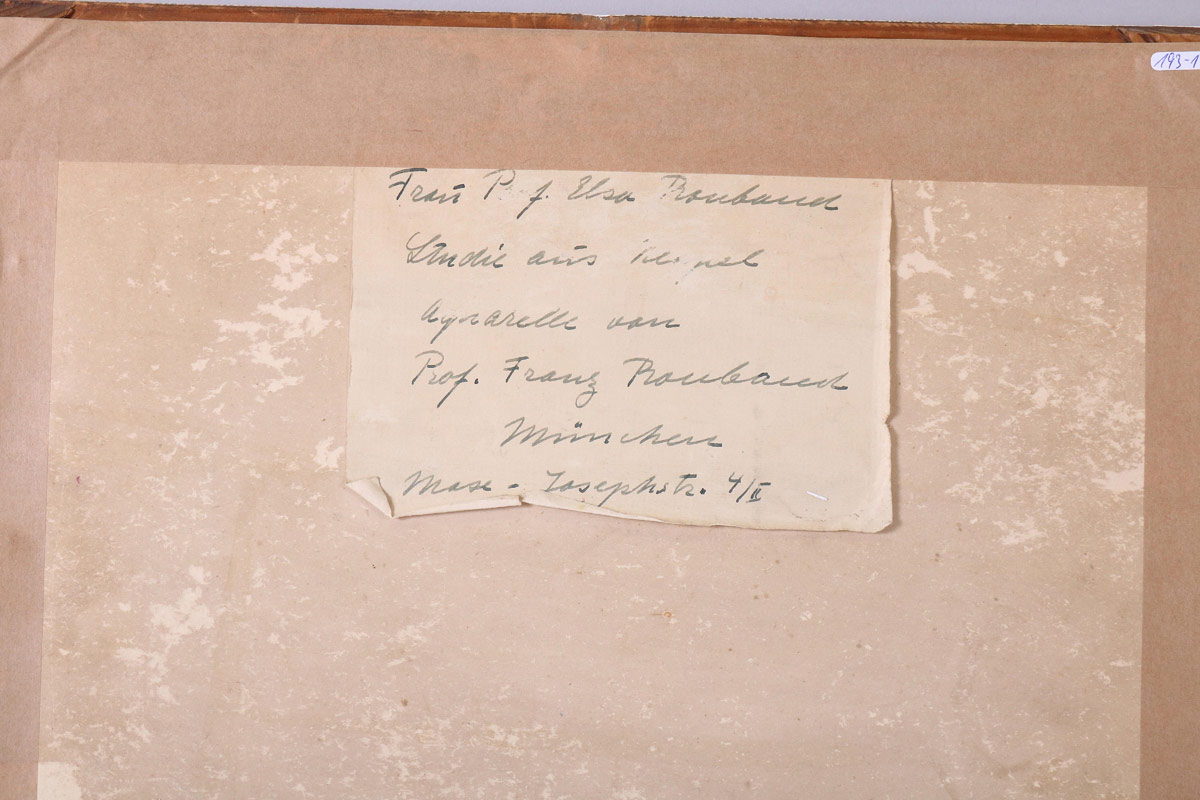 193-1
Frau P f. Elsa Roubaud
Studie aus
Aquarelle von
Prof. Franz Roubaud
München
Max - Josephstr. 4/II